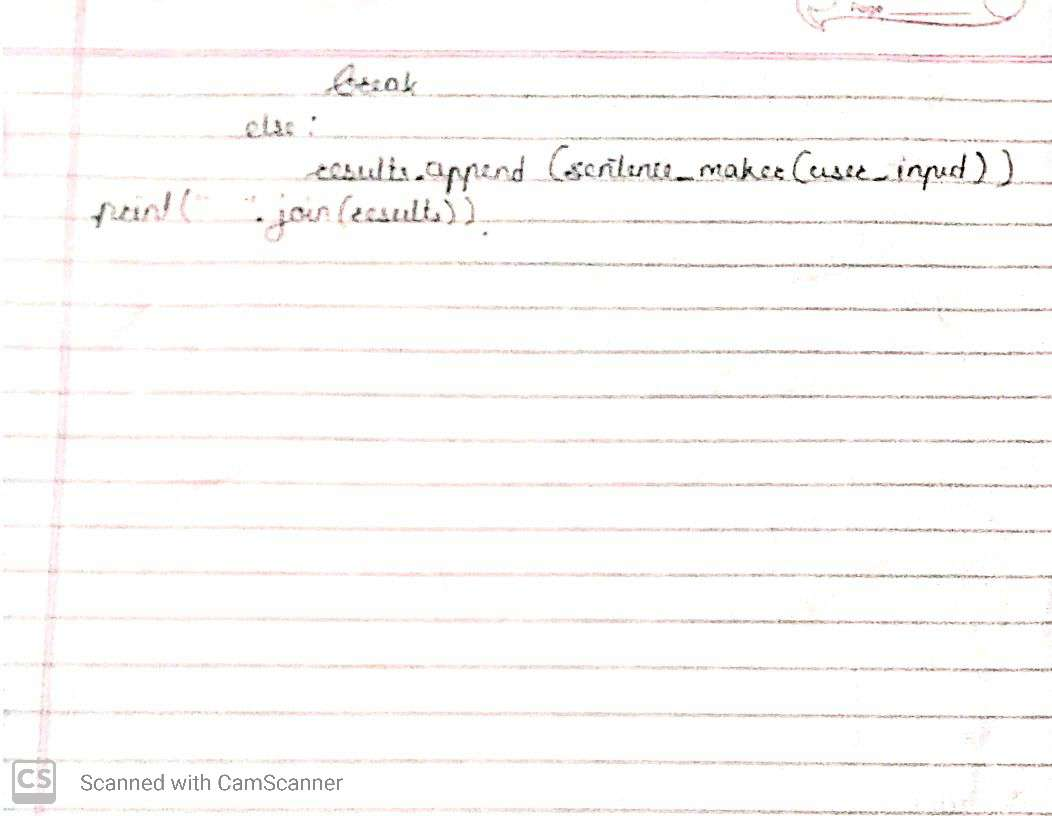 Page
break
else :
results.append (sentence_maker(user_input))
print(" ".join(results)).
CS Scanned with CamScanner